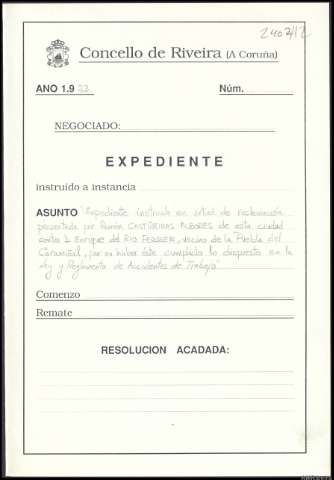 2402/12
Concello de Riveira (A Coruña)
ANO 1.9 23
Núm.
NEGOCIADO:
EXPEDIENTE
instruído a instancia
ASUNTO "Expediente instruido en virtud de reclamación
presentada por Ramón CASTIÑEIRAS ALBORES de esta ciudad
contra D. Enrique del RIO FERRER, vecino de la Puebla del
Caramiñal, por no haber éste cumplido lo dispuesto en la
Ley y Reglamento de Accidentes de Trabajo"
Comenzo
Remate
RESOLUCION ACADADA: